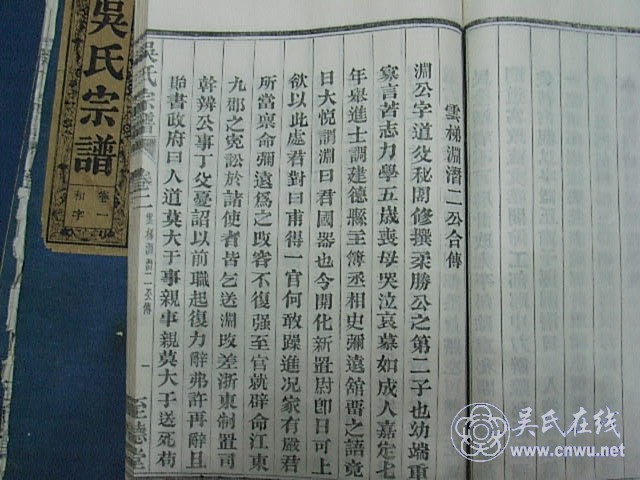 雲梯淵潛二公合傳
淵公字道父秘閣修撰柔勝公之第二子也幼端重
寡言苦志力學五歲喪母哭泣哀慕如成人嘉定七
年舉進士調建德縣主簿丞相史彌遠舘畱之語竟
日大悅謂淵曰君國器也今開化新置尉卽日可上
欲以此處君對曰甫得一官何敢躁進况家有嚴君
所當稟命彌遠爲之改容不復强至官就辟命江東
九郡之寃訟於諸使者皆乞送淵改差浙東制置司
幹辦公事丁父憂詔以前職起復力辭弗許再辭且
貽書政府曰人道莫大于事親事親莫大于送死苟
吳氏宗譜 卷二 雲梯淵潛二公傳 一 至德堂
吳氏宗譜
卷一
和字
吴氏在线
www.cnwu.net